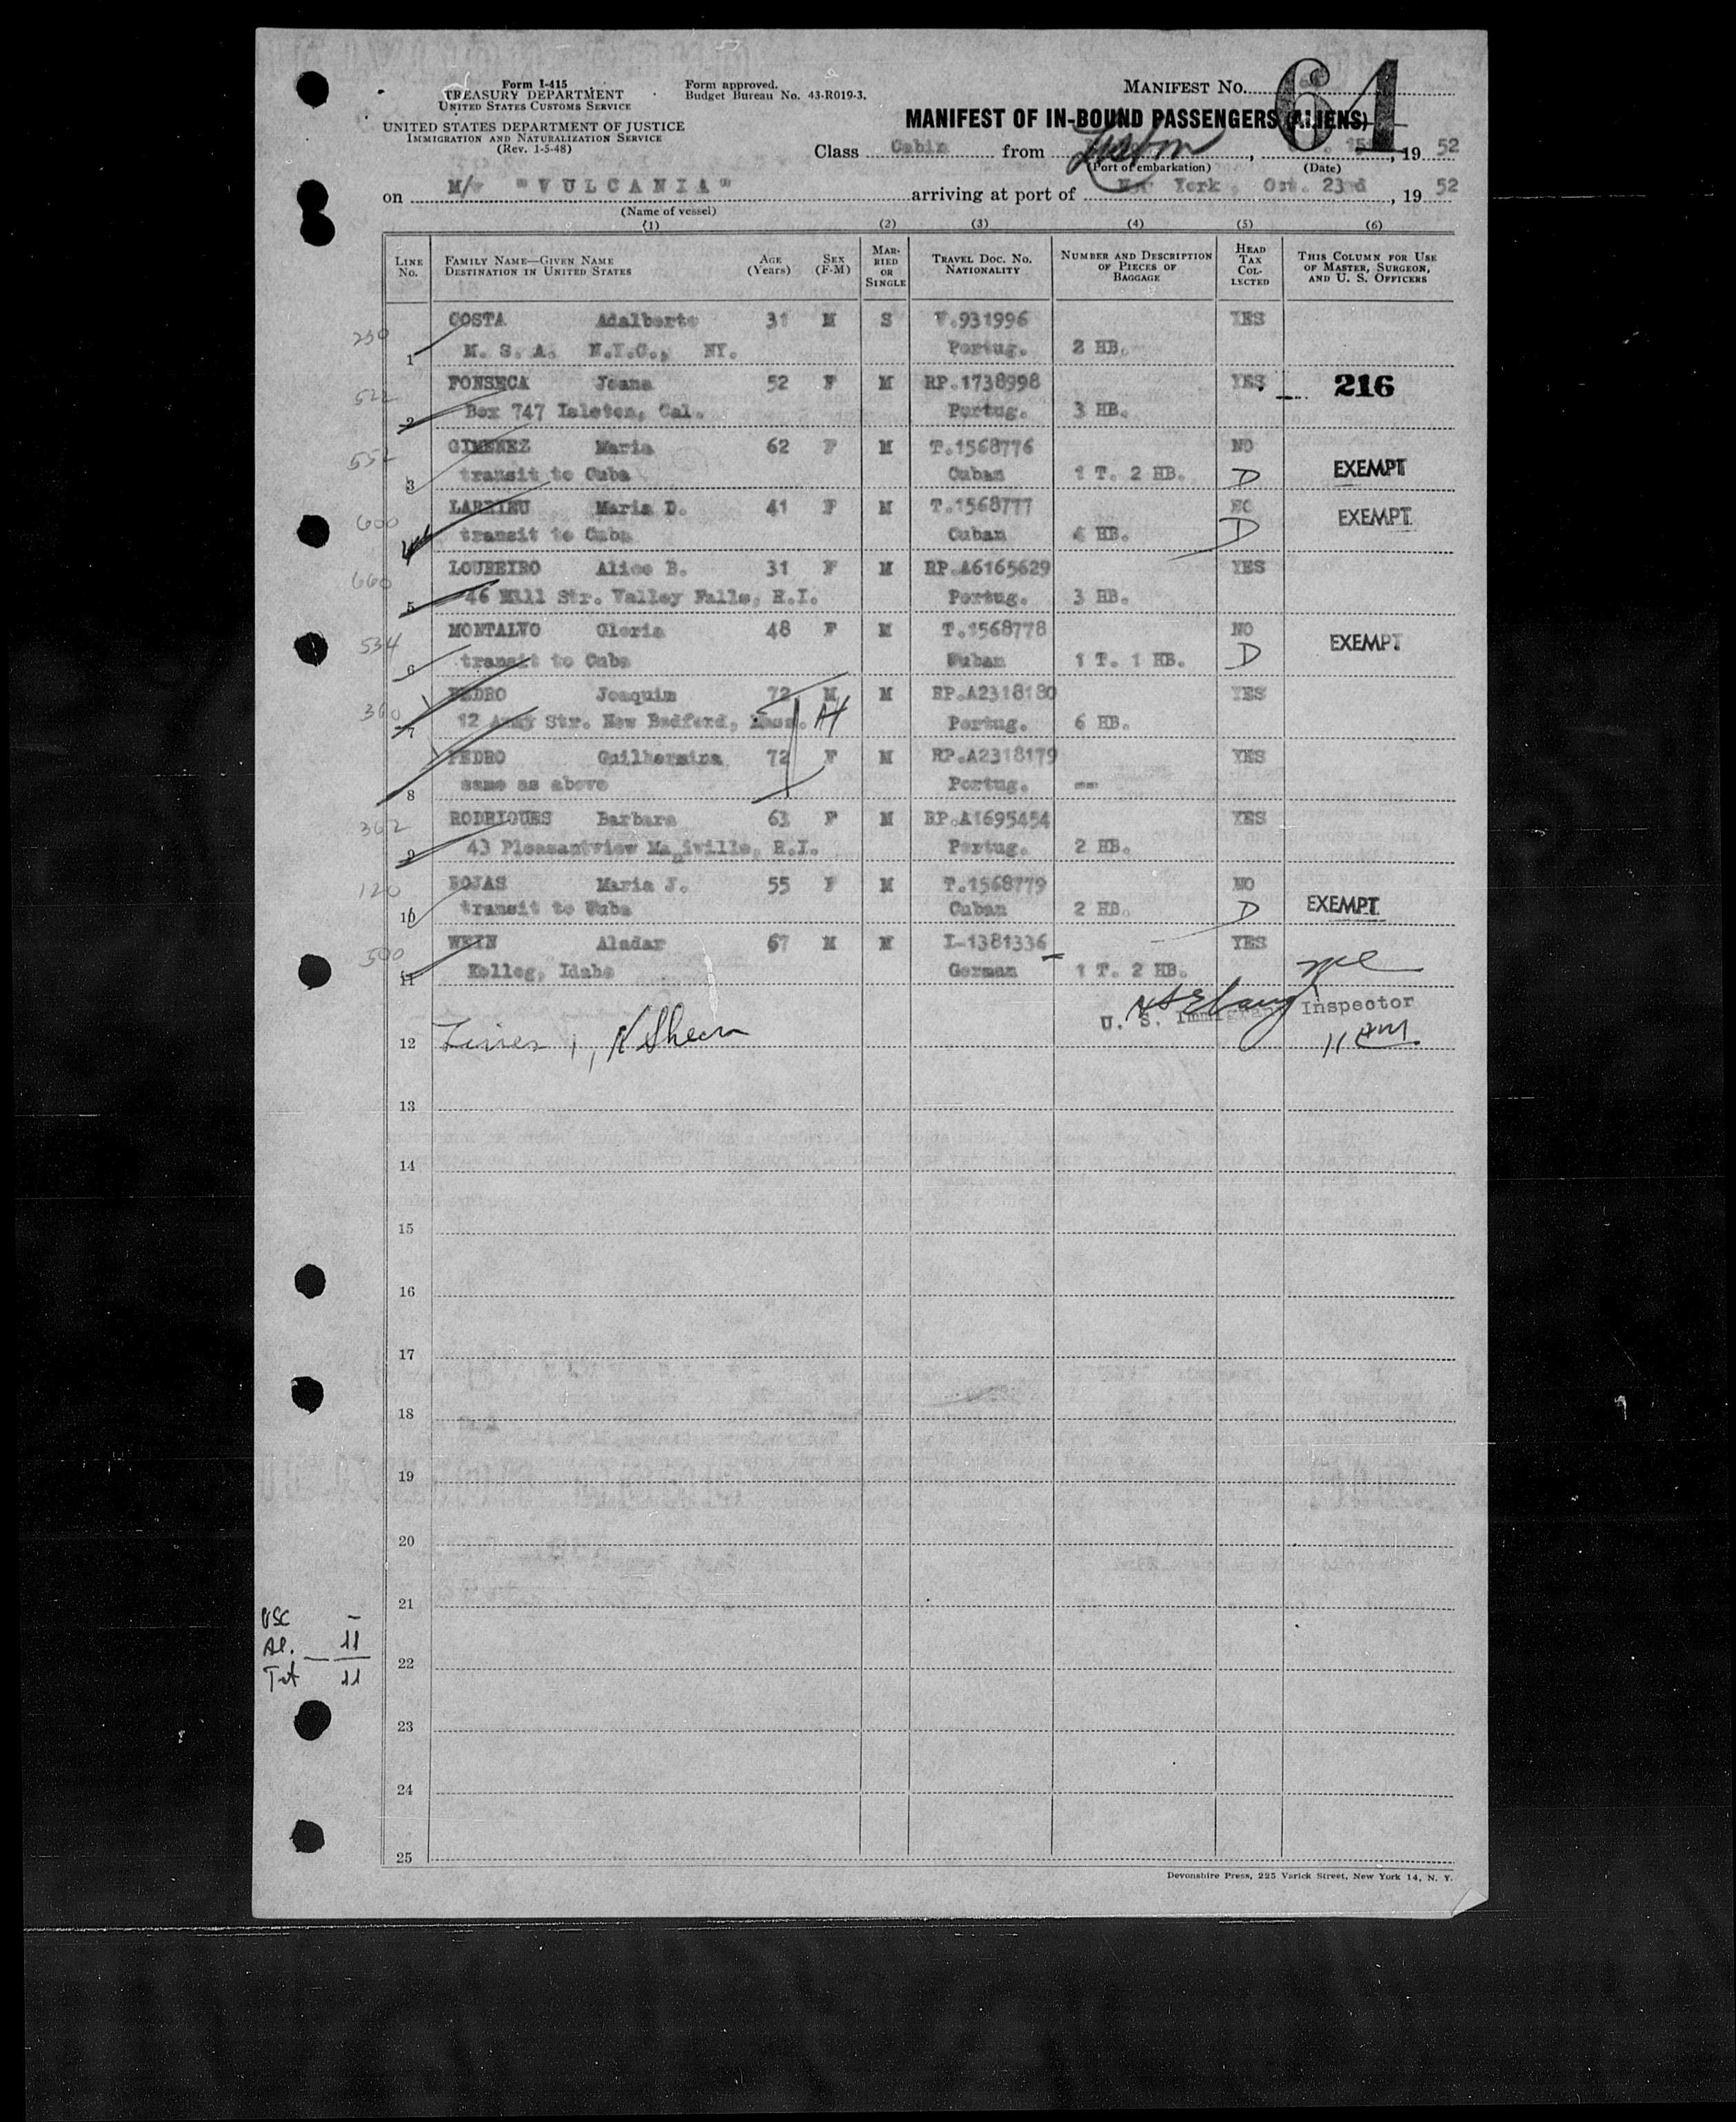 Form I-415
TREASURY DEPARTMENT
UNITED STATES CUSTOMS SERVICE
UNITED STATES DEPARTMENT OF JUSTICE
IMMIGRATION AND NATURALIZATION SERVICE
(Rev. 1-5-48)
Form approved.
Budget Bureau No. 43-R019-3.
MANIFEST No. 64
MANIFEST OF IN-BOUND PASSENGERS (ALIENS)
Class Cabin from Lisbon, 1952
(Port of embarkation) (Date)
on M/v "VULCANIA" arriving at port of New York, Oct. 23rd, 1952
(Name of vessel)
(1) (2) (3) (4) (5) (6)
LINE No. FAMILY NAME—GIVEN NAME DESTINATION IN UNITED STATES AGE (Years) SEX (F-M) MARRIED OR SINGLE TRAVEL DOC. NO. NATIONALITY NUMBER AND DESCRIPTION OF PIECES OF BAGGAGE HEAD TAX COLLECTED THIS COLUMN FOR USE OF MASTER, SURGEON, AND U. S. OFFICERS
230 COSTA Adalberto 31 M S V.931996 YES
1 M. S. A. N.Y.C., NY. Portug. 2 HB.
522 FONSECA Joana 52 F M RP.1738998 YES 216
2 Box 747 Isleton, Cal. Portug. 3 HB.
552 GIMENEZ Maria 62 F M T.1568776 NO
3 transit to Cuba Cuban 1 T. 2 HB. D EXEMPT
600 LARRIEU Maria D. 41 F M T.1568777 NO EXEMPT
4 transit to Cuba Cuban 4 HB. D
660 LOUREIRO Alice B. 31 F M RP.A6165629 YES
5 46 Mill Str. Valley Falls, R.I. Portug. 3 HB.
534 MONTALVO Gloria 48 F M T.1568778 NO EXEMPT
6 transit to Cuba Cuban 1 T. 1 HB. D
360 PEDRO Joaquim 72 M M RP.A2318180 YES
7 12 Str. New Bedford, Mass. Portug. 6 HB.
PEDRO Guilhermina 72 F M RP.A2318179 YES
8 same as above Portug. --
362 RODRIGUES Barbara 63 F M RP.A1695454 YES
9 43 Pleasantview Manville, R.I. Portug. 2 HB.
120 ROJAS Maria J. 55 F M T.1568779 NO
10 transit to Cuba Cuban 2 HB. D EXEMPT
500 WEIN Aladar 67 M M I-1381336 YES
11 Kelleg, Idaho German 1 T. 2 HB.
U. S. Immigrant Inspector
12
13
14
15
16
17
18
19
20
21
22
23
24
25
USC -
Al. 11
Tot 11
Devonshire Press, 225 Varick Street, New York 14, N. Y.